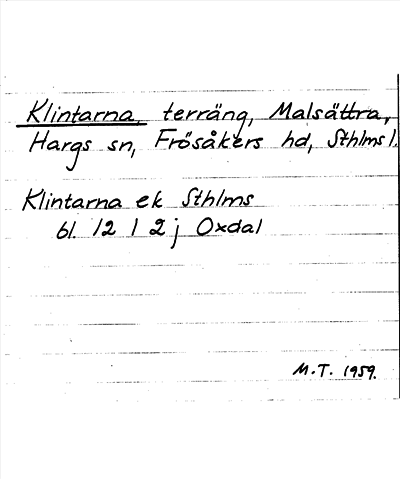 Klintarna, terräng, Malsättra,
Hargs sn, Frösåkers hd, Sthlms l.
Klintarna ek Sthlms
bl. 12 I 2 j Oxdal
M.T. 1959.